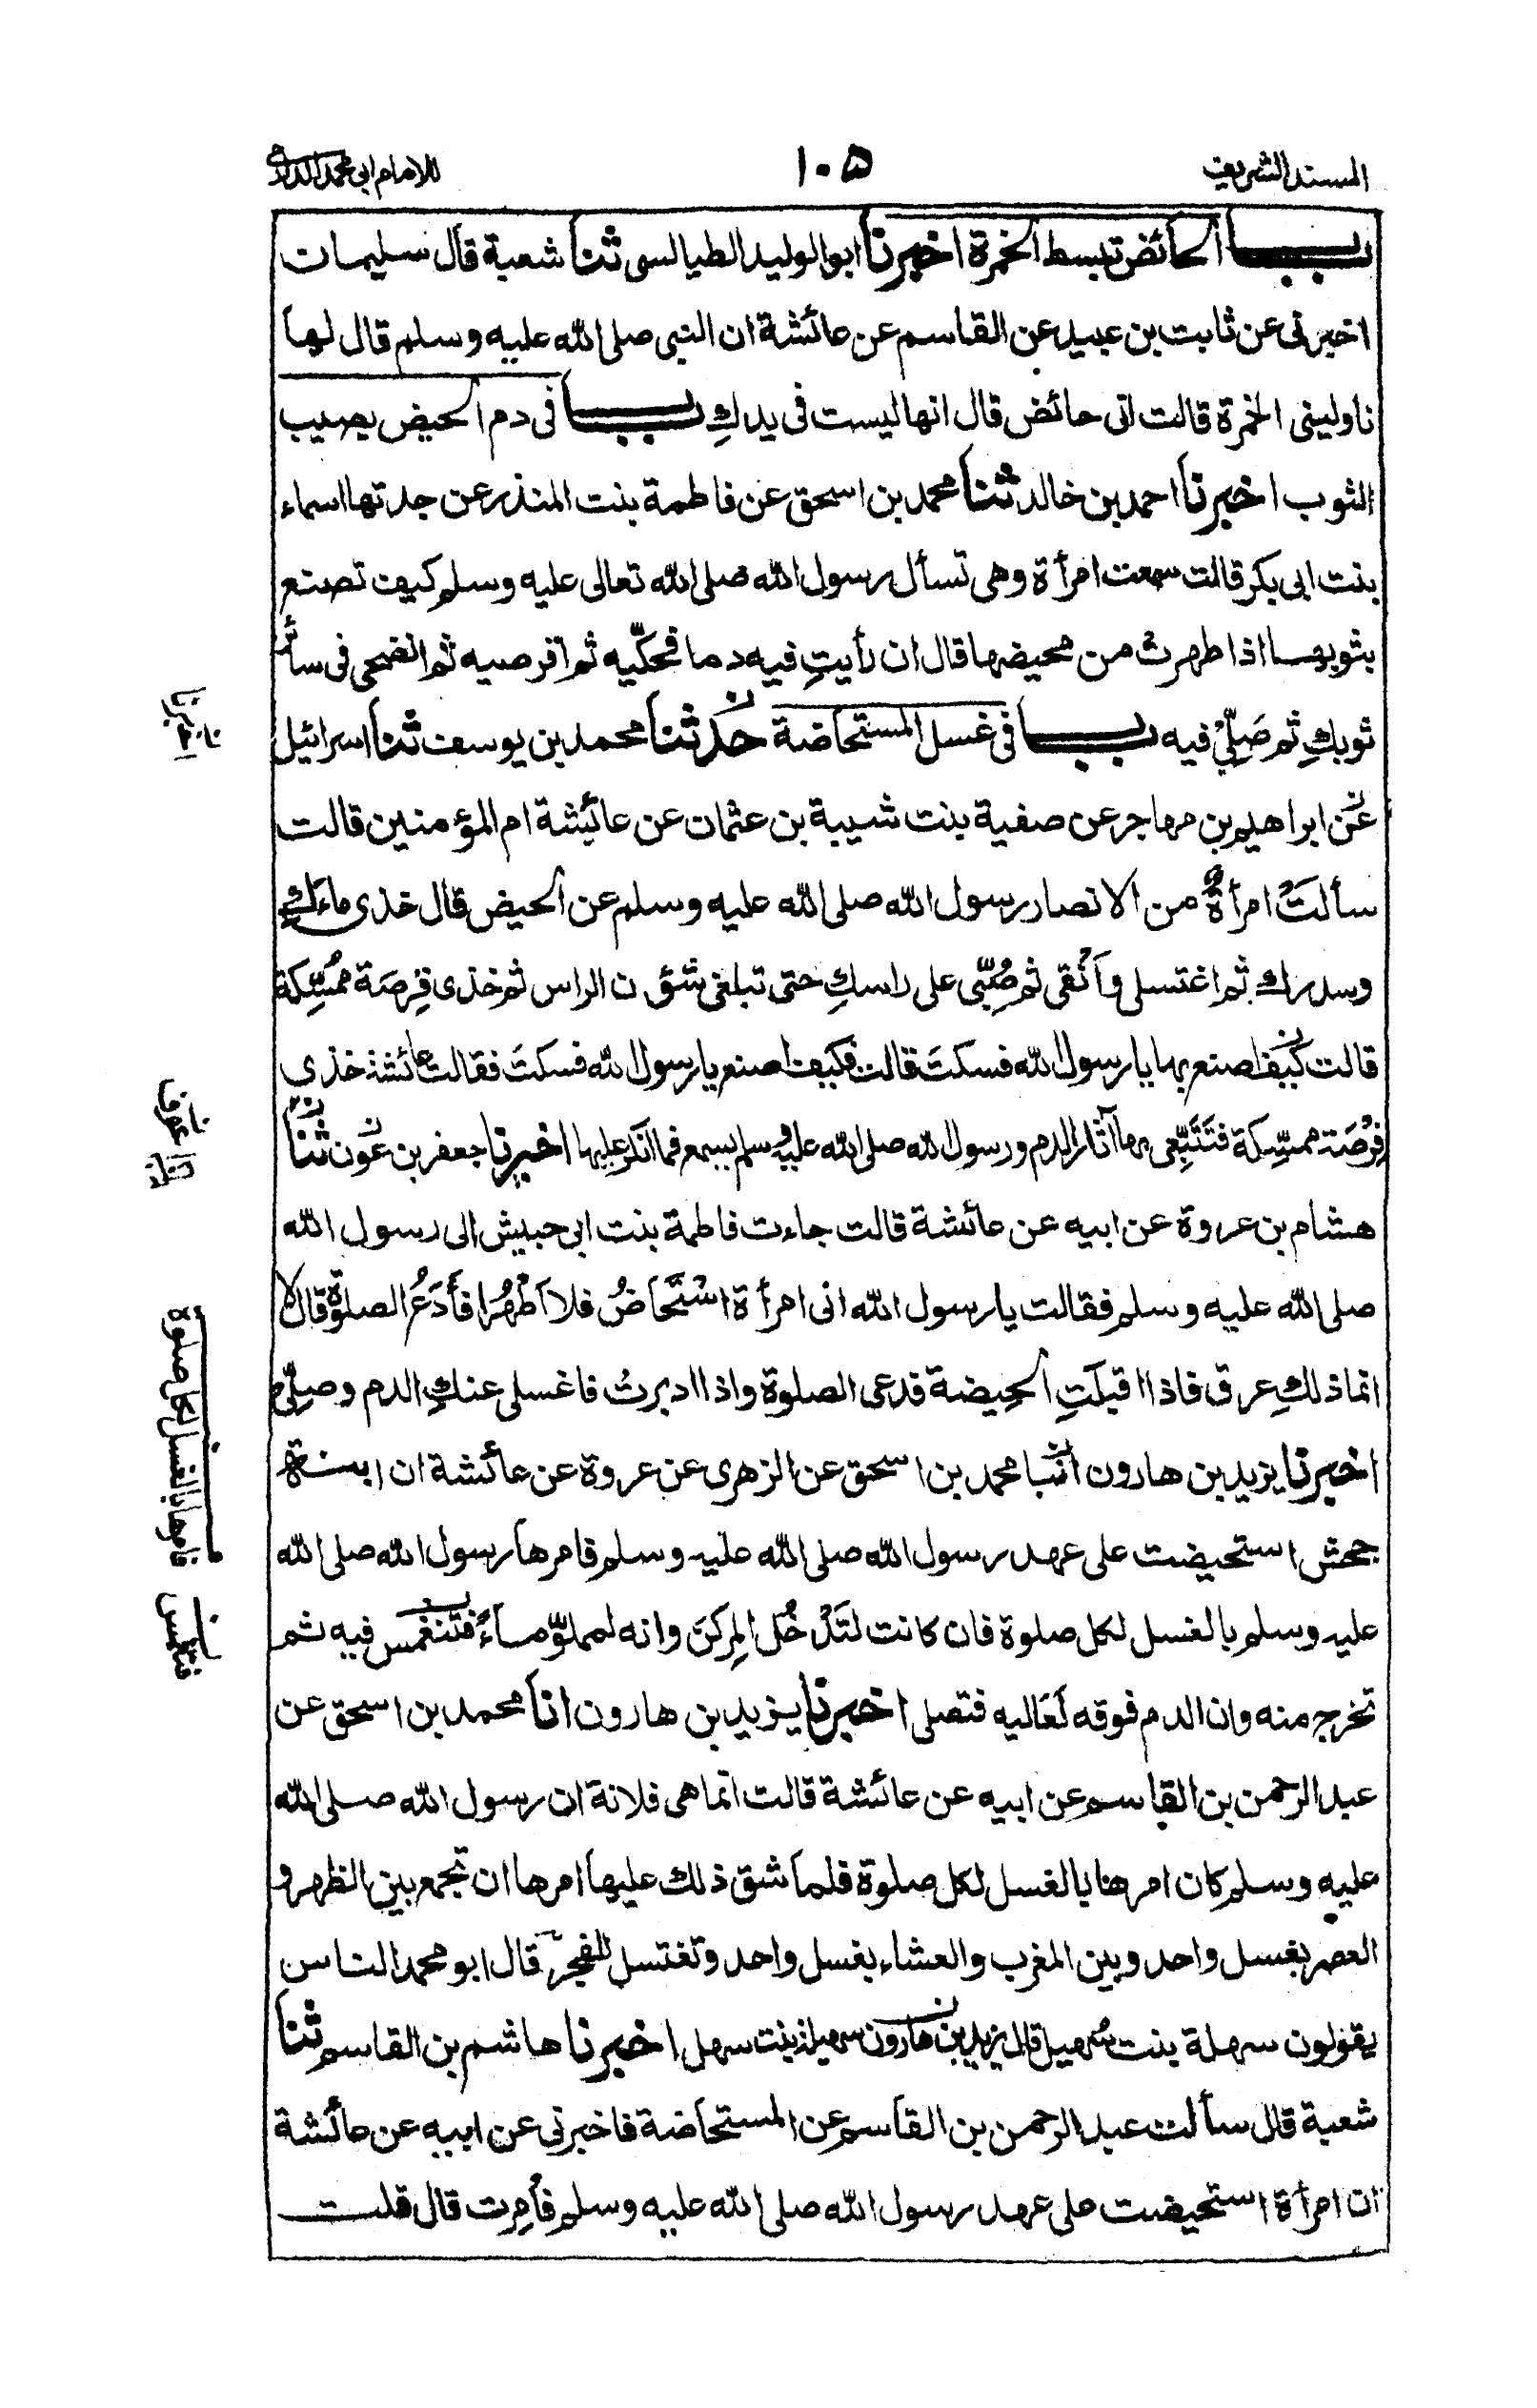 المسند الشريف
١٠۵
للامام ابى محمد الدارمى
باب الحائض تبسط الخمرة اخبرنا ابو الوليد الطيالسى ثنا شعبة قال سليمان
اخبرنى عن ثابت بن عبيد عن القاسم عن عائشة ان النبى صلى الله عليه وسلم قال لها
ناولينى الخمرة قالت انى حائض قال انها ليست فى يدكِ باب فى دم الحيض يصيب
الثوب اخبرنا احمد بن خالد ثنا محمد بن اسحق عن فاطمة بنت المنذر عن جدتها اسماء
بنت ابى بكر قالت سمعت امرأة وهى تسأل رسول الله صلى الله تعالى عليه وسلم كيف تصنع
بثوبها اذا طهرت من محيضها قال ان رأيتِ فيه دما فحكّيه ثم اقرصيه ثم انضحى فى سائر
ثوبكِ ثم صَلِّىْ فيه باب فى غسل المستحاضة حدثنا محمد بن يوسف ثنا اسرائيل
عن ابراهيم بن مهاجر عن صفية بنت شيبة بن عثمان عن عائيشة ام المؤمنين قالت
سألَتْ امرأةٌ من الانصار رسول الله صلى الله عليه وسلم عن الحيض قال خذى ماءكِ
وسدركِ ثم اغتسلى وَاَنْقى ثم صُبّى على راسكِ حتى تبلغى شؤن الراس ثم خذى فِرصَة مُمَسَّكة
قالت كيف اصنع بها يا رسول الله فسكت قالت فكيف اصنع يا رسول الله فسكتَ فقالت عائشة خذى
فِرْصَة ممسَّكة فتَتَبَّعى بها آثار الدم ورسول الله صلى الله عليه وسلم يسمع فما انكر عليها اخبرنا جعفر بن عون ثنا
هشام بن عروة عن ابيه عن عائشة قالت جاءت فاطمة بنت ابى حبيش الى رسول الله
صلى الله عليه وسلم فقالت يا رسول الله انى امرأة اسْتَحَاضُ فلا اَطْهُر افَأَدَعُ الصلوة قال لا
انما ذلكِ عرق فاذا اقبلَتِ الحيضة فدعى الصلوة واذا ادبرتْ فاغسلى عنكِ الدم وصلِّى
اخبرنا يزيد بن هارون انبا محمد بن اسحق عن الزهرى عن عروة عن عائشة ان ابنة
جحش استحيضت على عهد رسول الله صلى الله عليه وسلم فامرها رسول الله صلى الله
عليه وسلم بالغسل لكل صلوة فان كانت لتَدْخُل المِركَنَ وانه لمملوّ ماءً فتنغمس فيه ثم
تخرج منه وان الدم فوقه لَعَاليه فتصلى اخبرنا يزيد بن هارون انا محمد بن اسحق عن
عبد الرحمن بن القاسم عن ابيه عن عائشة قالت انما هى فلانة ان رسول الله صلى الله
عليه وسلم كان امرها بالغسل لكل صلوة فلما شق ذلك عليها امرها ان تجمع بين الظهر و
العصر بغسل واحد وبين المغرب والعشاء بغسل واحد وتغتسل للفجر قال ابو محمد الناس
يقولون سهلة بنت سُهيل قال يزيد بن هارون سهيلة بنت سهل اخبرنا هاشم بن القاسم ثنا
شعبة قال سألت عبد الرحمن بن القاسم عن المستحاضة فاخبرنى عن ابيه عن عائشة
ان امرأة استحيضت على عهد رسول الله صلى الله عليه وسلم فأُمِرت قال قلت
اخبرنا
عوف
فامرها بالغسل لكل صلوة